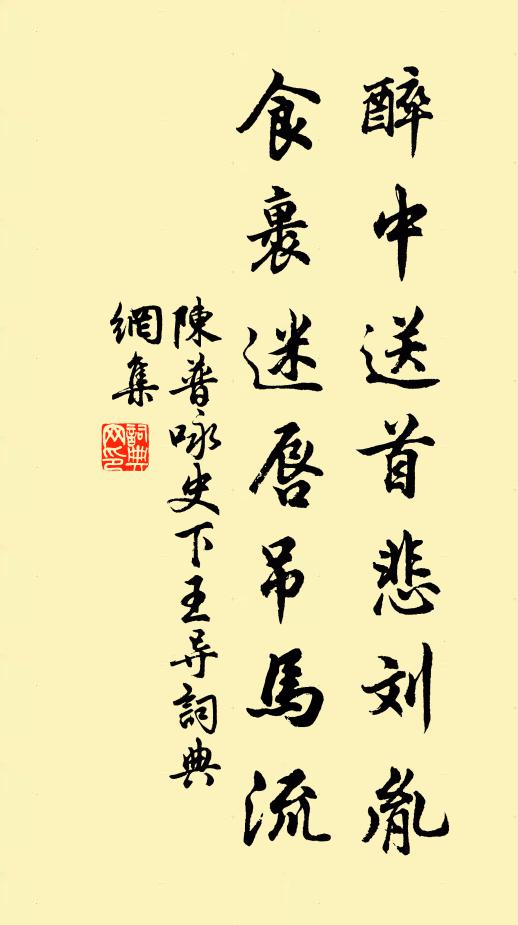 醉中送首悲刘胤
食裹迷唇吊馬流
陳普咏史下王导詞典
網集
詞典
网印